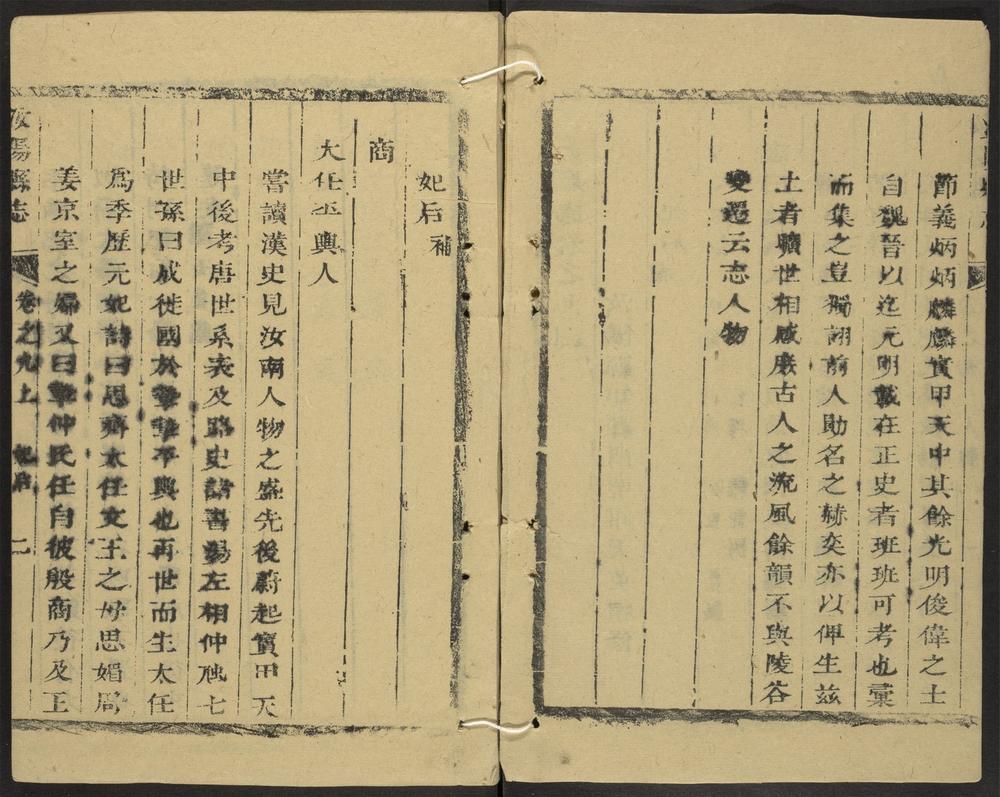 節義炳炳麟麟實甲天中其餘光明俊偉之士
自魏晉以迄元明載在正史者班班可考也彙
而集之豈獨詡前人勛名之赫奕亦以俾生茲
土者曠世相感庶古人之流風餘韻不與陵谷
變遷云志人物
妃后補
商
大任平輿人
嘗讀漢史見汝南人物之盛先後蔚起實甲天
中後考唐世系表及路史諸書湯左相仲虺七
世孫曰成徙國於摯摯平輿也再世而生太任
爲季歷元妃詩曰思齊太任文王之母思媚周
姜京室之婦又曰摯仲氏任自彼殷商乃及王
汝陽縣志
卷之九上
妃后
二